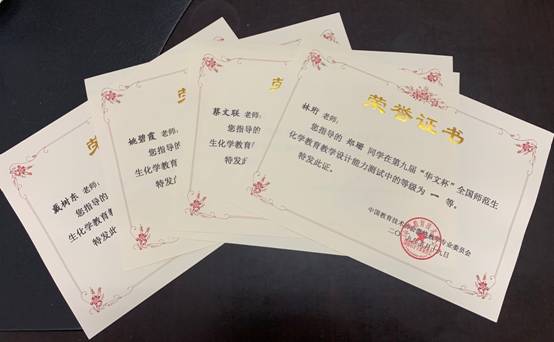 戴树东 老师：
您指导的
生化学教育教
特发此
姚碧霞 老师：
您指导的
生化学教育
特发
蔡文联 老师：
您指导的
生化学教育
特发
荣誉证书
林珩 老师：
您指导的 郑珊 同学在第九届“华文杯”全国师范生
化学教育教学设计能力测试中的等级为 一 等，
特发此证。
中国教育技术协会 教学专业委员会
二〇 九日